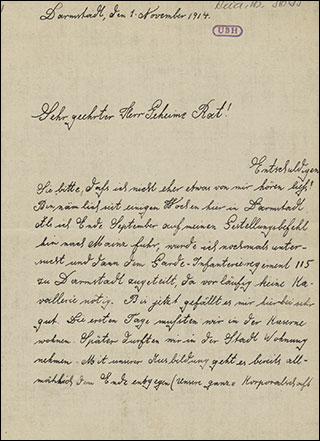 Darmstadt, den 1. November 1914.
UBH
Sehr geehrter Herr Geheime Rat!
Entschuldigen
Sie bitte, daß ich nicht eher etwas von mir hören ließ!
Bin nämlich seit einigen Wochen hier in Darmstadt
Als ich Ende September auf meinen Gestellungsbefehl
hin nach Mainz fuhr, wurde ich nochmals unter-
sucht und dann dem Garde-Infanterieregiment 115
zu Darmstadt zugeteilt, da vorläufig keine Ka-
vallerie nötig. Bis jetzt gefällt es mir hierbei sehr
gut. Die ersten Tage mußten wir in der Kaserne
wohnen. Später durften wir in der Stadt Wohnung
nehmen. Mit unserer Ausbildung geht es bereits all-
mählich dem Ende entgegen (Unsere ganze Korporalschaft